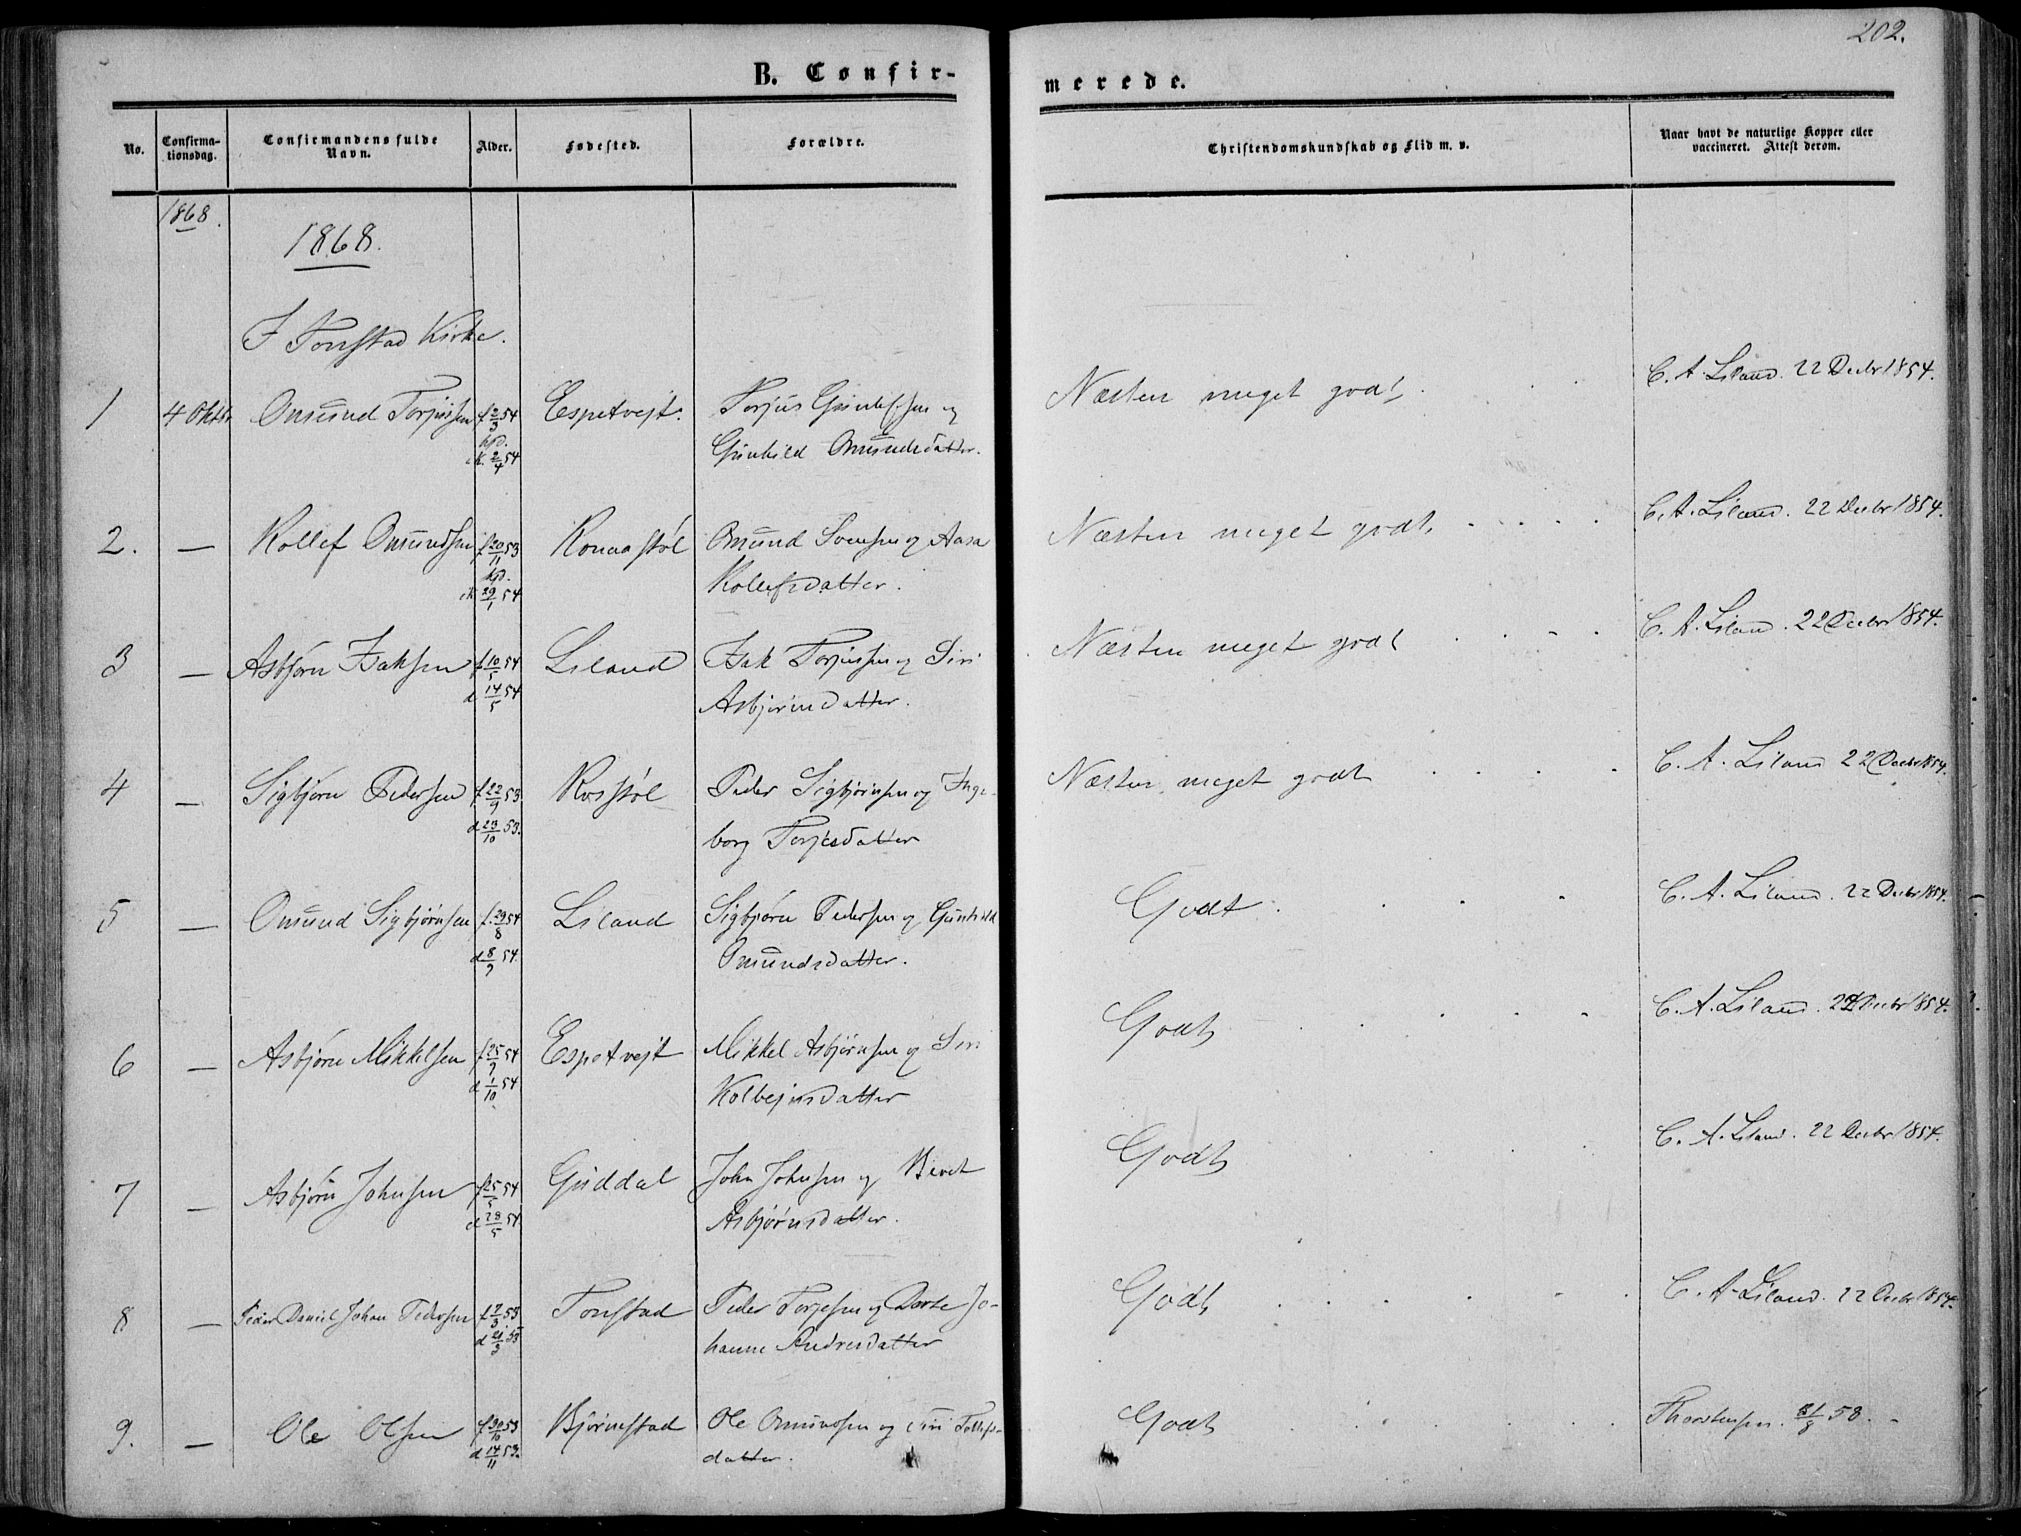 202.
B. Confirmerede.
No. Confirmationsdag. Confirmandens fulde Navn. Alder. Fødested. Forældre. Christendomskundskab og Flid m. v. Naar havt de naturlige Kopper eller vaccineret. Attest derom.
1868.
1868.
I Tonstad Kirke.
1 4 Oktbr Omund Torjussen f 2/3 54 Espetvejt. Torjus Gunlefsen og Næsten meget godt C. A. Liland. 22 Decbr 1854.
hjd.
k. 2/4 54 Gunhild Omundsdatter.
2. — Rollef Omundsen f 20/11 53 Ronaastøl Omund Svensen og Aasa Næsten meget godt C. A. Liland. 22 Decbr 1854.
hjd.
k 29/1 54 Rollefsdatter.
3 — Asbjørn Isaksen f 10/5 54 Liland Isak Torjussen og Siri Næsten meget godt C. A. Liland. 22 Decbr 1854.
d 14/5 54 Asbjørnsdatter.
4 — Sigbjørn Pedersen f 22/9 53. Rosstøl Peder Sigbjørnsen og Inge- Næsten meget godt C. A. Liland 22 Decbr 1854.
d 23/10 53. borg Torjesdatter
5 — Omund Sigbjørnsen f. 29/8 54 Liland Sigbjørn Pedersen og Gunhild Godt. C. A. Liland. 22 Decbr 1854.
d 8/9 54. Omundsdatter.
6 — Asbjørn Mikkelsen f 25/9 54 Espetvejt Mikkel Asbjørnsen og Siri Godt C. A. Liland. 22 Decbr 1854.
d 1/10 54 Kolbejnsdatter
7 — Asbjørn Johnsen f 25/5 54 Guddal John Johnsen og Beret Godt C. A. Liland. 22 Decbr 1854.
d 28/5 54. Asbjørnsdatter.
8 — Peder Daniel Johan Pedersen f 7/3 53 Tonstad Peder Torjesen og Dorte Jo- Godt C. A. Liland. 22 Decbr 1854.
d 21/3 53 hanne Andresdatter
9. — Ole Olsen f 30/10 53 Bjørnestad Ole Omundsen og Siri Tollefs- Godt Thorstensen. 31/8 58.
d 14/11 53. datter.